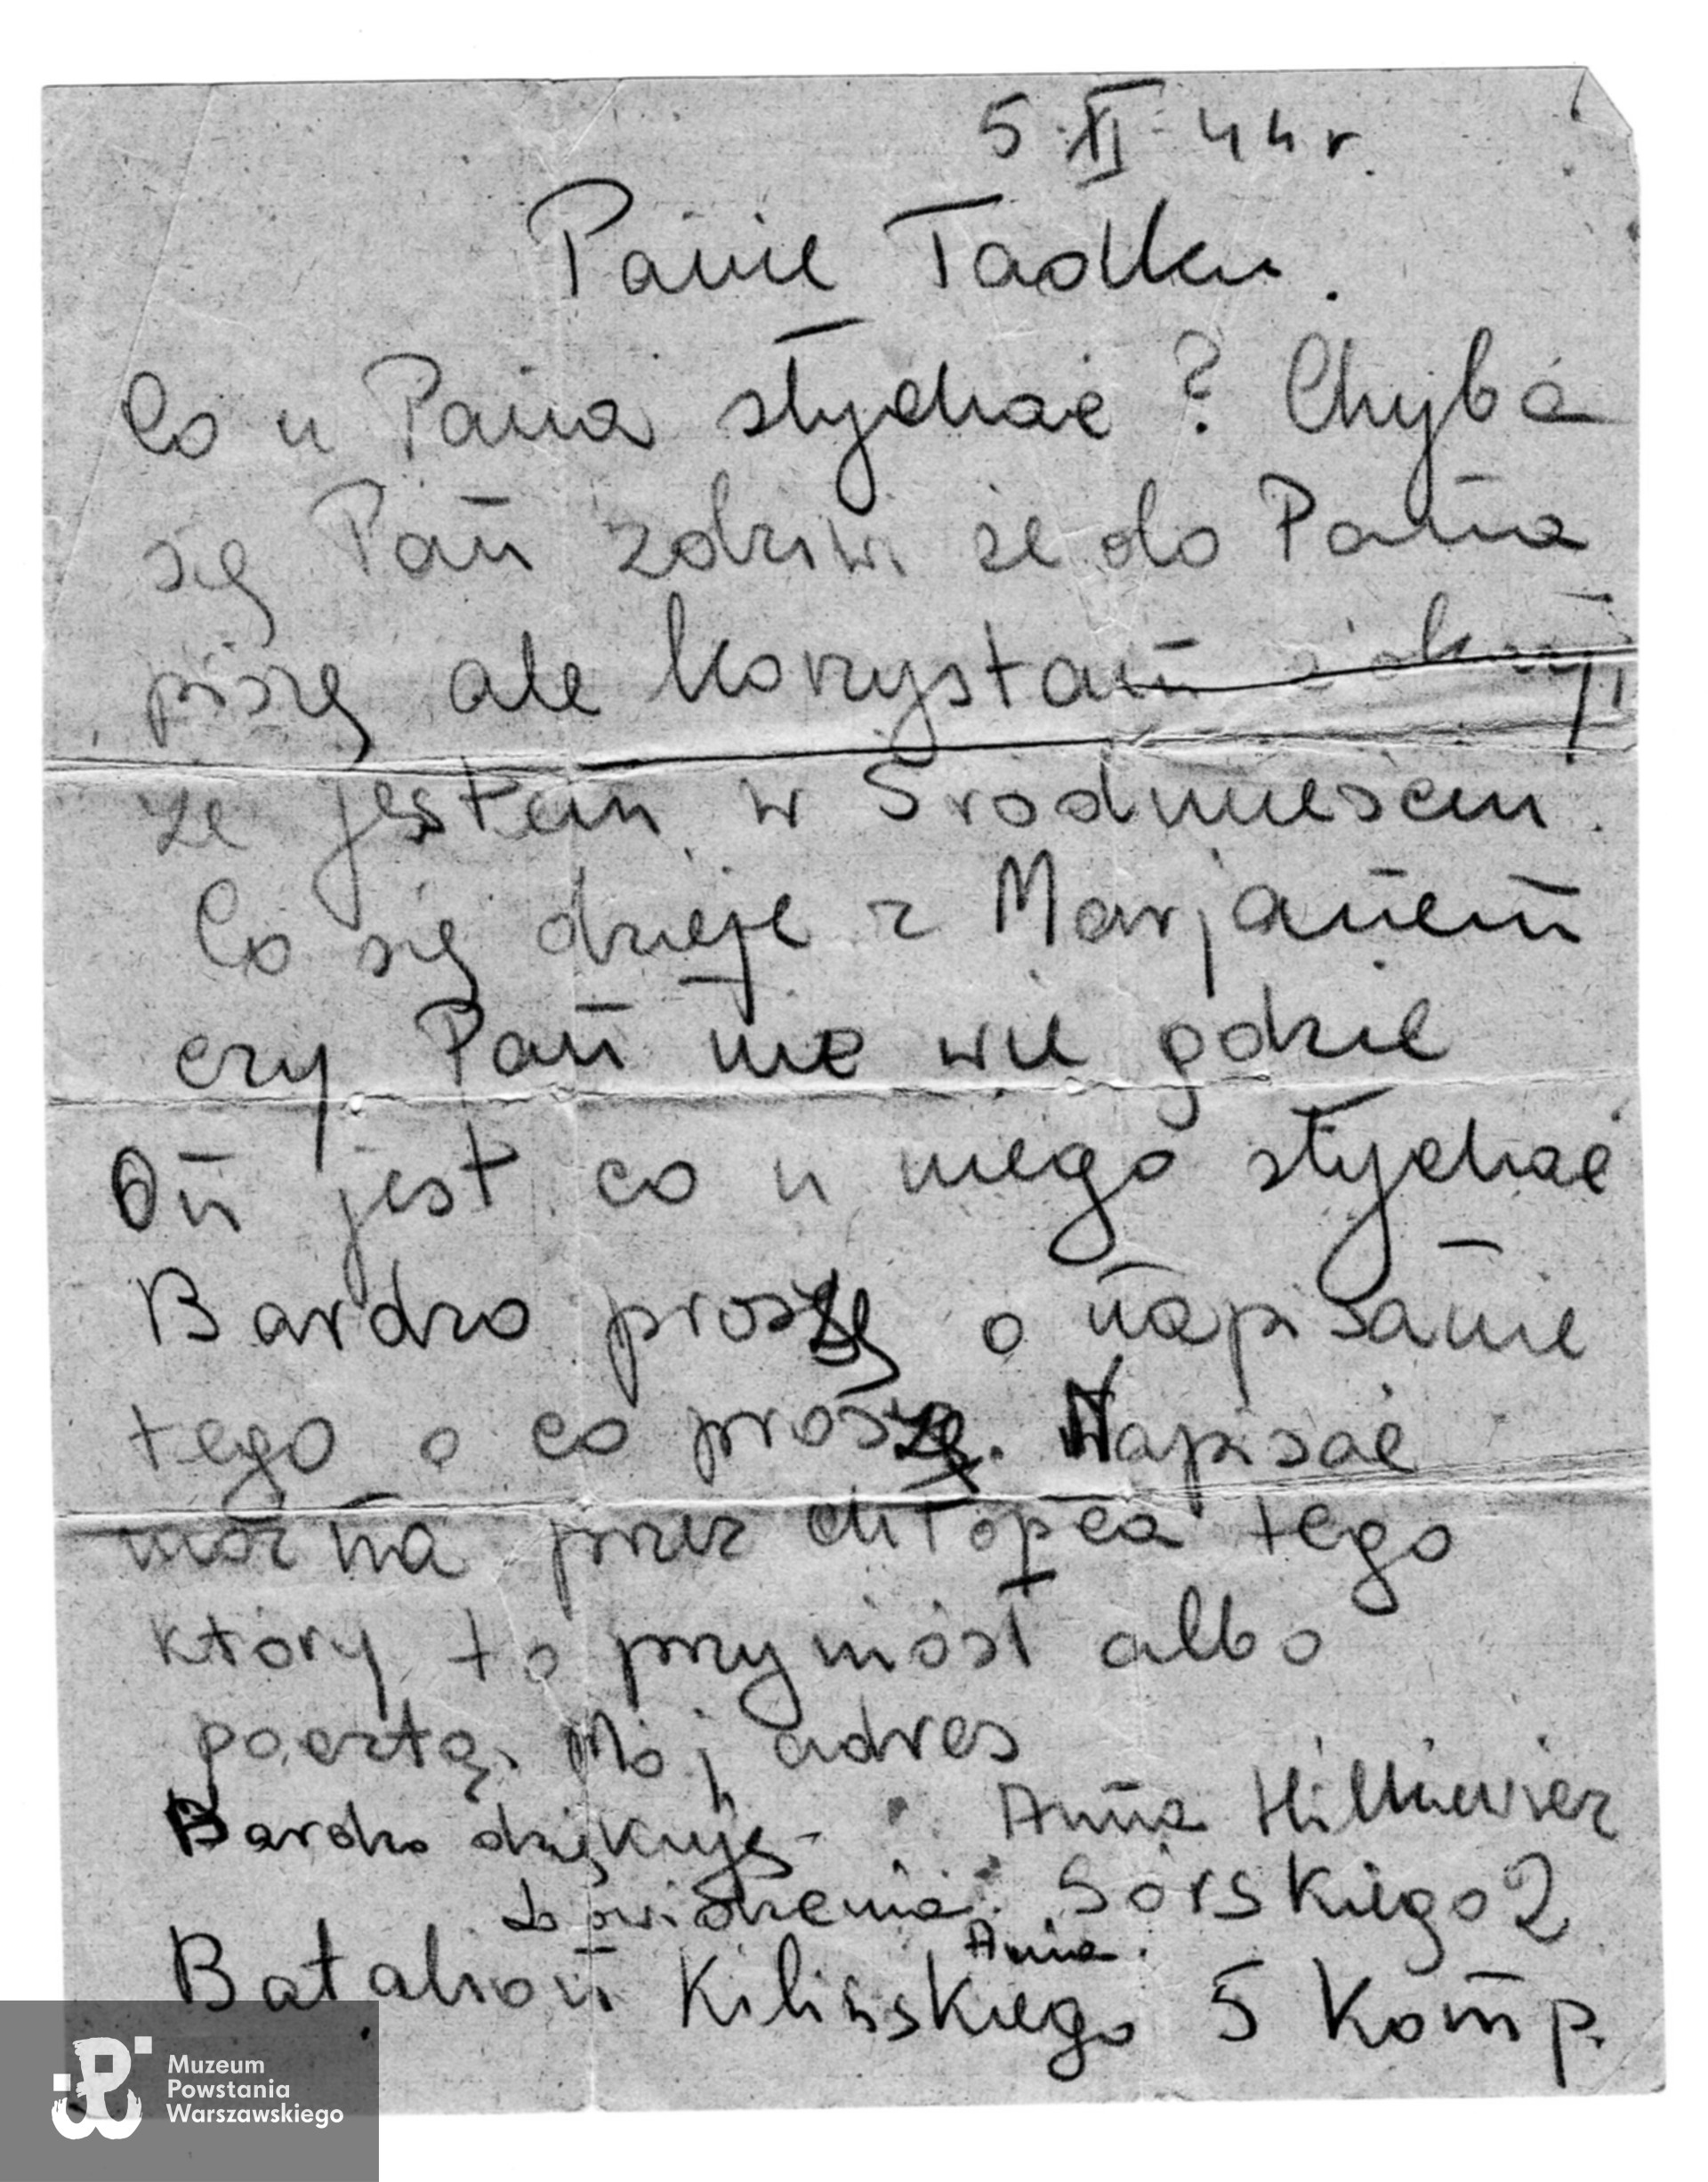 5 XI 44 r.
Panie Tadku.
Co u Pana słychać? Chyba
się Pan zdziwi że do Pana
piszę ale korzystam z okazji,
że jestem w Śródmieściu.
Co się dzieje z Marjanem
czy Pan nie wie gdzie
On jest co u niego słychać
Bardzo proszę o napisanie
tego o co proszę. Napisać
można przez chłopca tego
który to przyniósł albo
pocztą. Mój adres
Bardzo dziękuję - Anna
Do widzenia. Sórskiego 2
Ania.
Batalion Kilińskiego 5 Komp.
Muzeum
Powstania
Warszawskiego